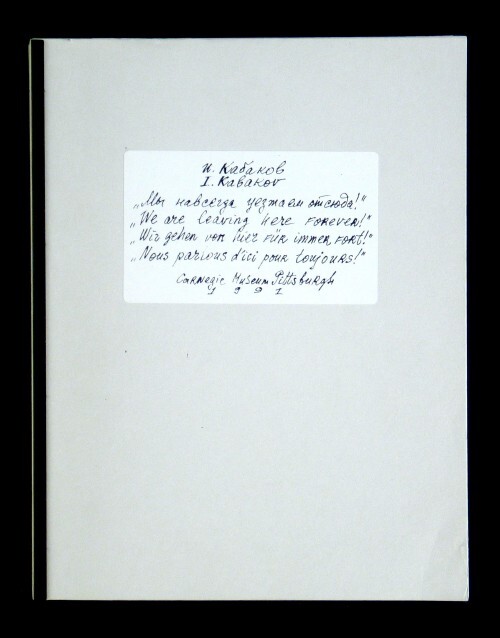 И. Кабаков
I. Kabakov
„Мы навсегда уезжаем отсюда!"
„We are leaving here FOREVER!"
„Wir gehen von hier FÜR immer FORT!"
„Nous parions d'ici pour toujours!"
Carnegie Museum Pittsburgh
1991